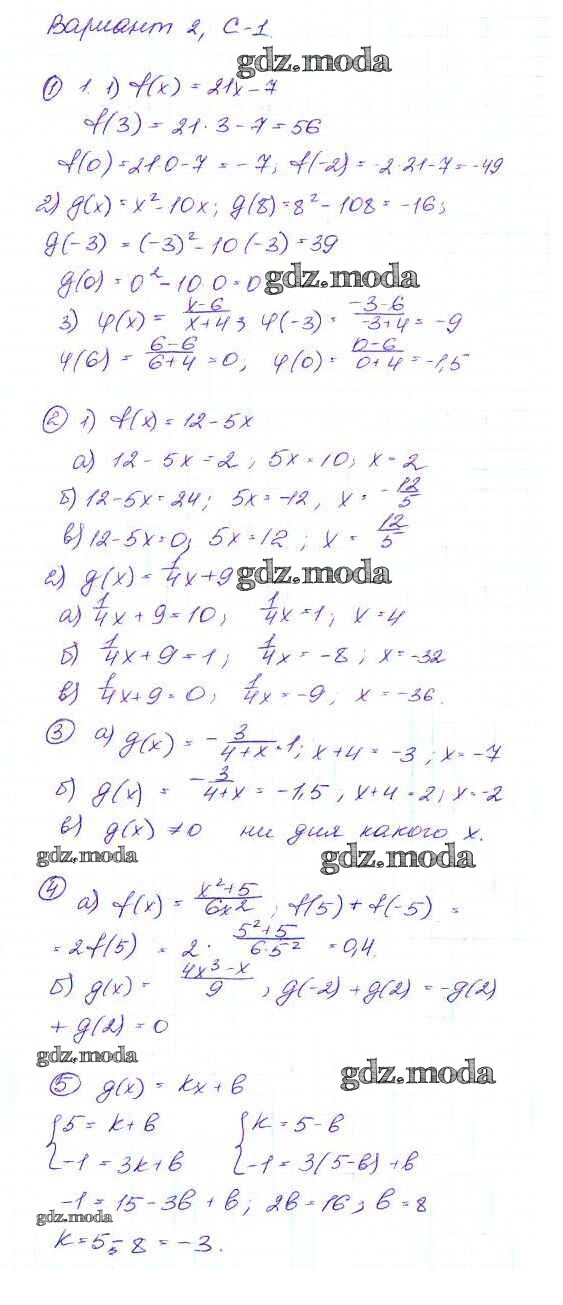 Вариант 2, С-1.
gdz.moda
① 1. 1) f(x) = 21x - 7
f(3) = 21 · 3 - 7 = 56
f(0) = 21 0 - 7 = - 7; f(-2) = -2·21-7 = -49
2) g(x) = x² - 10x; g(8) = 8² - 108 = -16;
g(-3) = (-3)² - 10(-3) = 39
g(0) = 0² - 10·0 = 0
gdz.moda
3) φ(x) = x-6/x+4; φ(-3) = -3-6/-3+4 = -9
φ(6) = 6-6/6+4 = 0; φ(0) = 0-6/0+4 = -1,5
② 1) f(x) = 12 - 5x
а) 12 - 5x = 2; 5x = 10; x = 2
б) 12 - 5x = 24; 5x = -12, x = -12/5
в) 12 - 5x = 0; 5x = 12; x = 12/5
2) g(x) = 1/4x + 9
gdz.moda
а) 1/4x + 9 = 10; 1/4x = 1; x = 4
б) 1/4x + 9 = 1; 1/4x = -8; x = -32
в) 1/4x + 9 = 0; 1/4x = -9; x = -36.
③ а) g(x) = -3/4+x = 1; x + 4 = -3; x = -7
б) g(x) = -3/4+x = -1,5, x + 4 = 2; x = -2
в) g(x) ≠ 0 ни для какого x.
gdz.moda gdz.moda
④ а) f(x) = x²+5/6x²; f(5) + f(-5) =
= 2f(5) = 2 · 5²+5/6·5² = 0,4.
б) g(x) = 4x³-x/9; g(-2) + g(2) = -g(2)
+ g(2) = 0
gdz.moda
⑤ g(x) = kx + b
gdz.moda
{5 = k + b {k = 5 - b
{-1 = 3k + b {-1 = 3(5-b) + b
-1 = 15 - 3b + b; 2b = 16; b = 8
gdz.moda
k = 5 - 8 = -3.